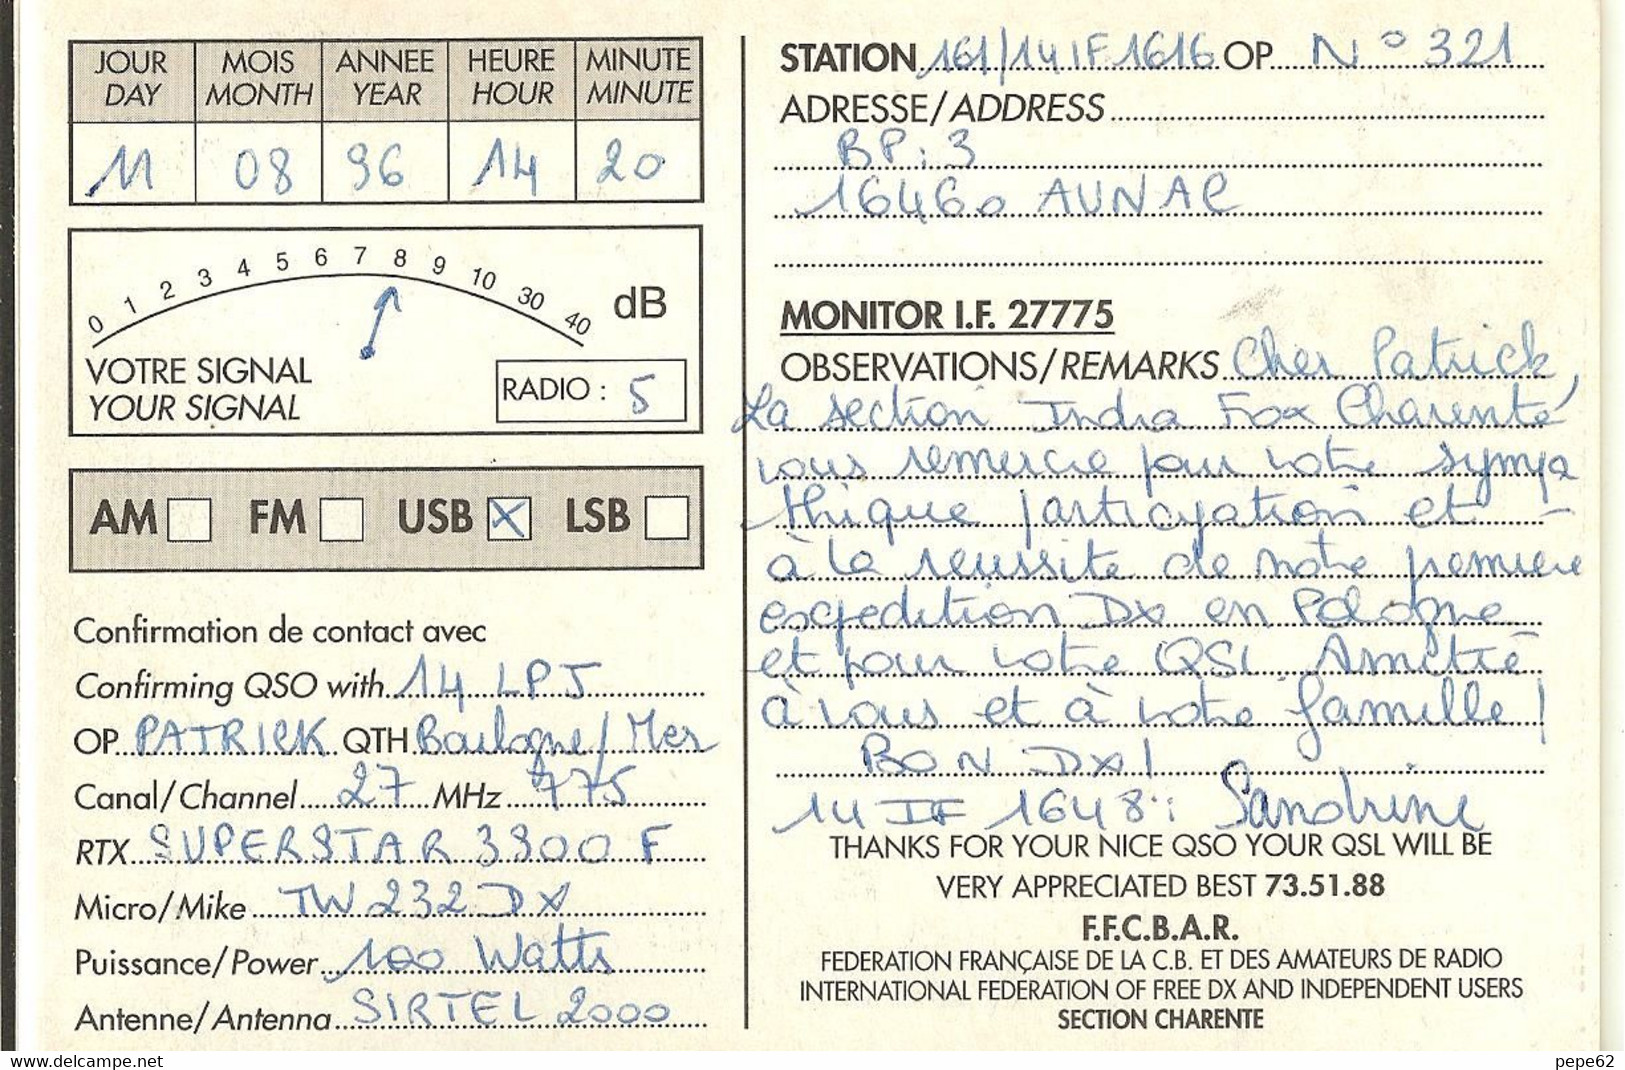 JOUR MOIS ANNEE HEURE MINUTE
DAY MONTH YEAR HOUR MINUTE
11 08 96 14 20
0 1 2 3 4 5 6 7 8 9 10 30 40
dB
VOTRE SIGNAL
YOUR SIGNAL
RADIO : 5
AM FM USB X LSB
Confirmation de contact avec
Confirming QSO with 14 LPJ
OP PATRICK QTH Boulogne/Mer
Canal/Channel 27 MHz 775
RTX SUPERSTAR 3900 F
Micro/Mike TW 232 DX
Puissance/Power 100 Watts
Antenne/Antenna SIRTEL 2000
STATION 161/14IF1616 OP N° 321
ADRESSE/ADDRESS
BP: 3
16460 AUNAC
MONITOR I.F. 27775
OBSERVATIONS/REMARKS Cher Patrick,
La section India Fox Charente
vous remercie pour votre sympa
thique participation et -
à la reussite de notre premiere
expedition DX en Pologne
et pour votre QSL. Amitié
à vous et à votre famille!
BON DX!
14 IF 1648: Sandrine
THANKS FOR YOUR NICE QSO YOUR QSL WILL BE
VERY APPRECIATED BEST 73.51.88
F.F.C.B.A.R.
FEDERATION FRANÇAISE DE LA C.B. ET DES AMATEURS DE RADIO
INTERNATIONAL FEDERATION OF FREE DX AND INDEPENDENT USERS
SECTION CHARENTE
www.delcampe.net pepe62